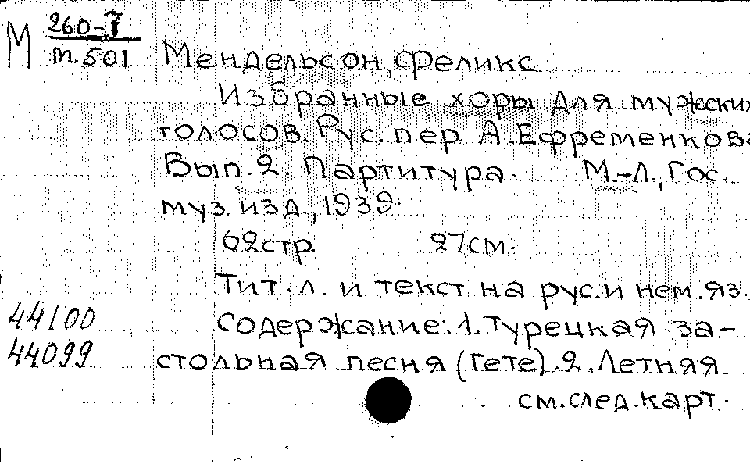 М 260-I
т.501
Мендельсон, Феликс
Избранные хоры для мужских
голосов. Рус. пер. А. Ефременкова
Вып. 2. Партитура. М.-Л., Гос.
муз. изд., 1939.
62 стр. 27 см.
Тит. л. и текст на рус. и нем. яз.
44100
Содержание: 1. Турецкая за-
44099
стольная песня (Гете). 2. Летняя
см. след. карт.